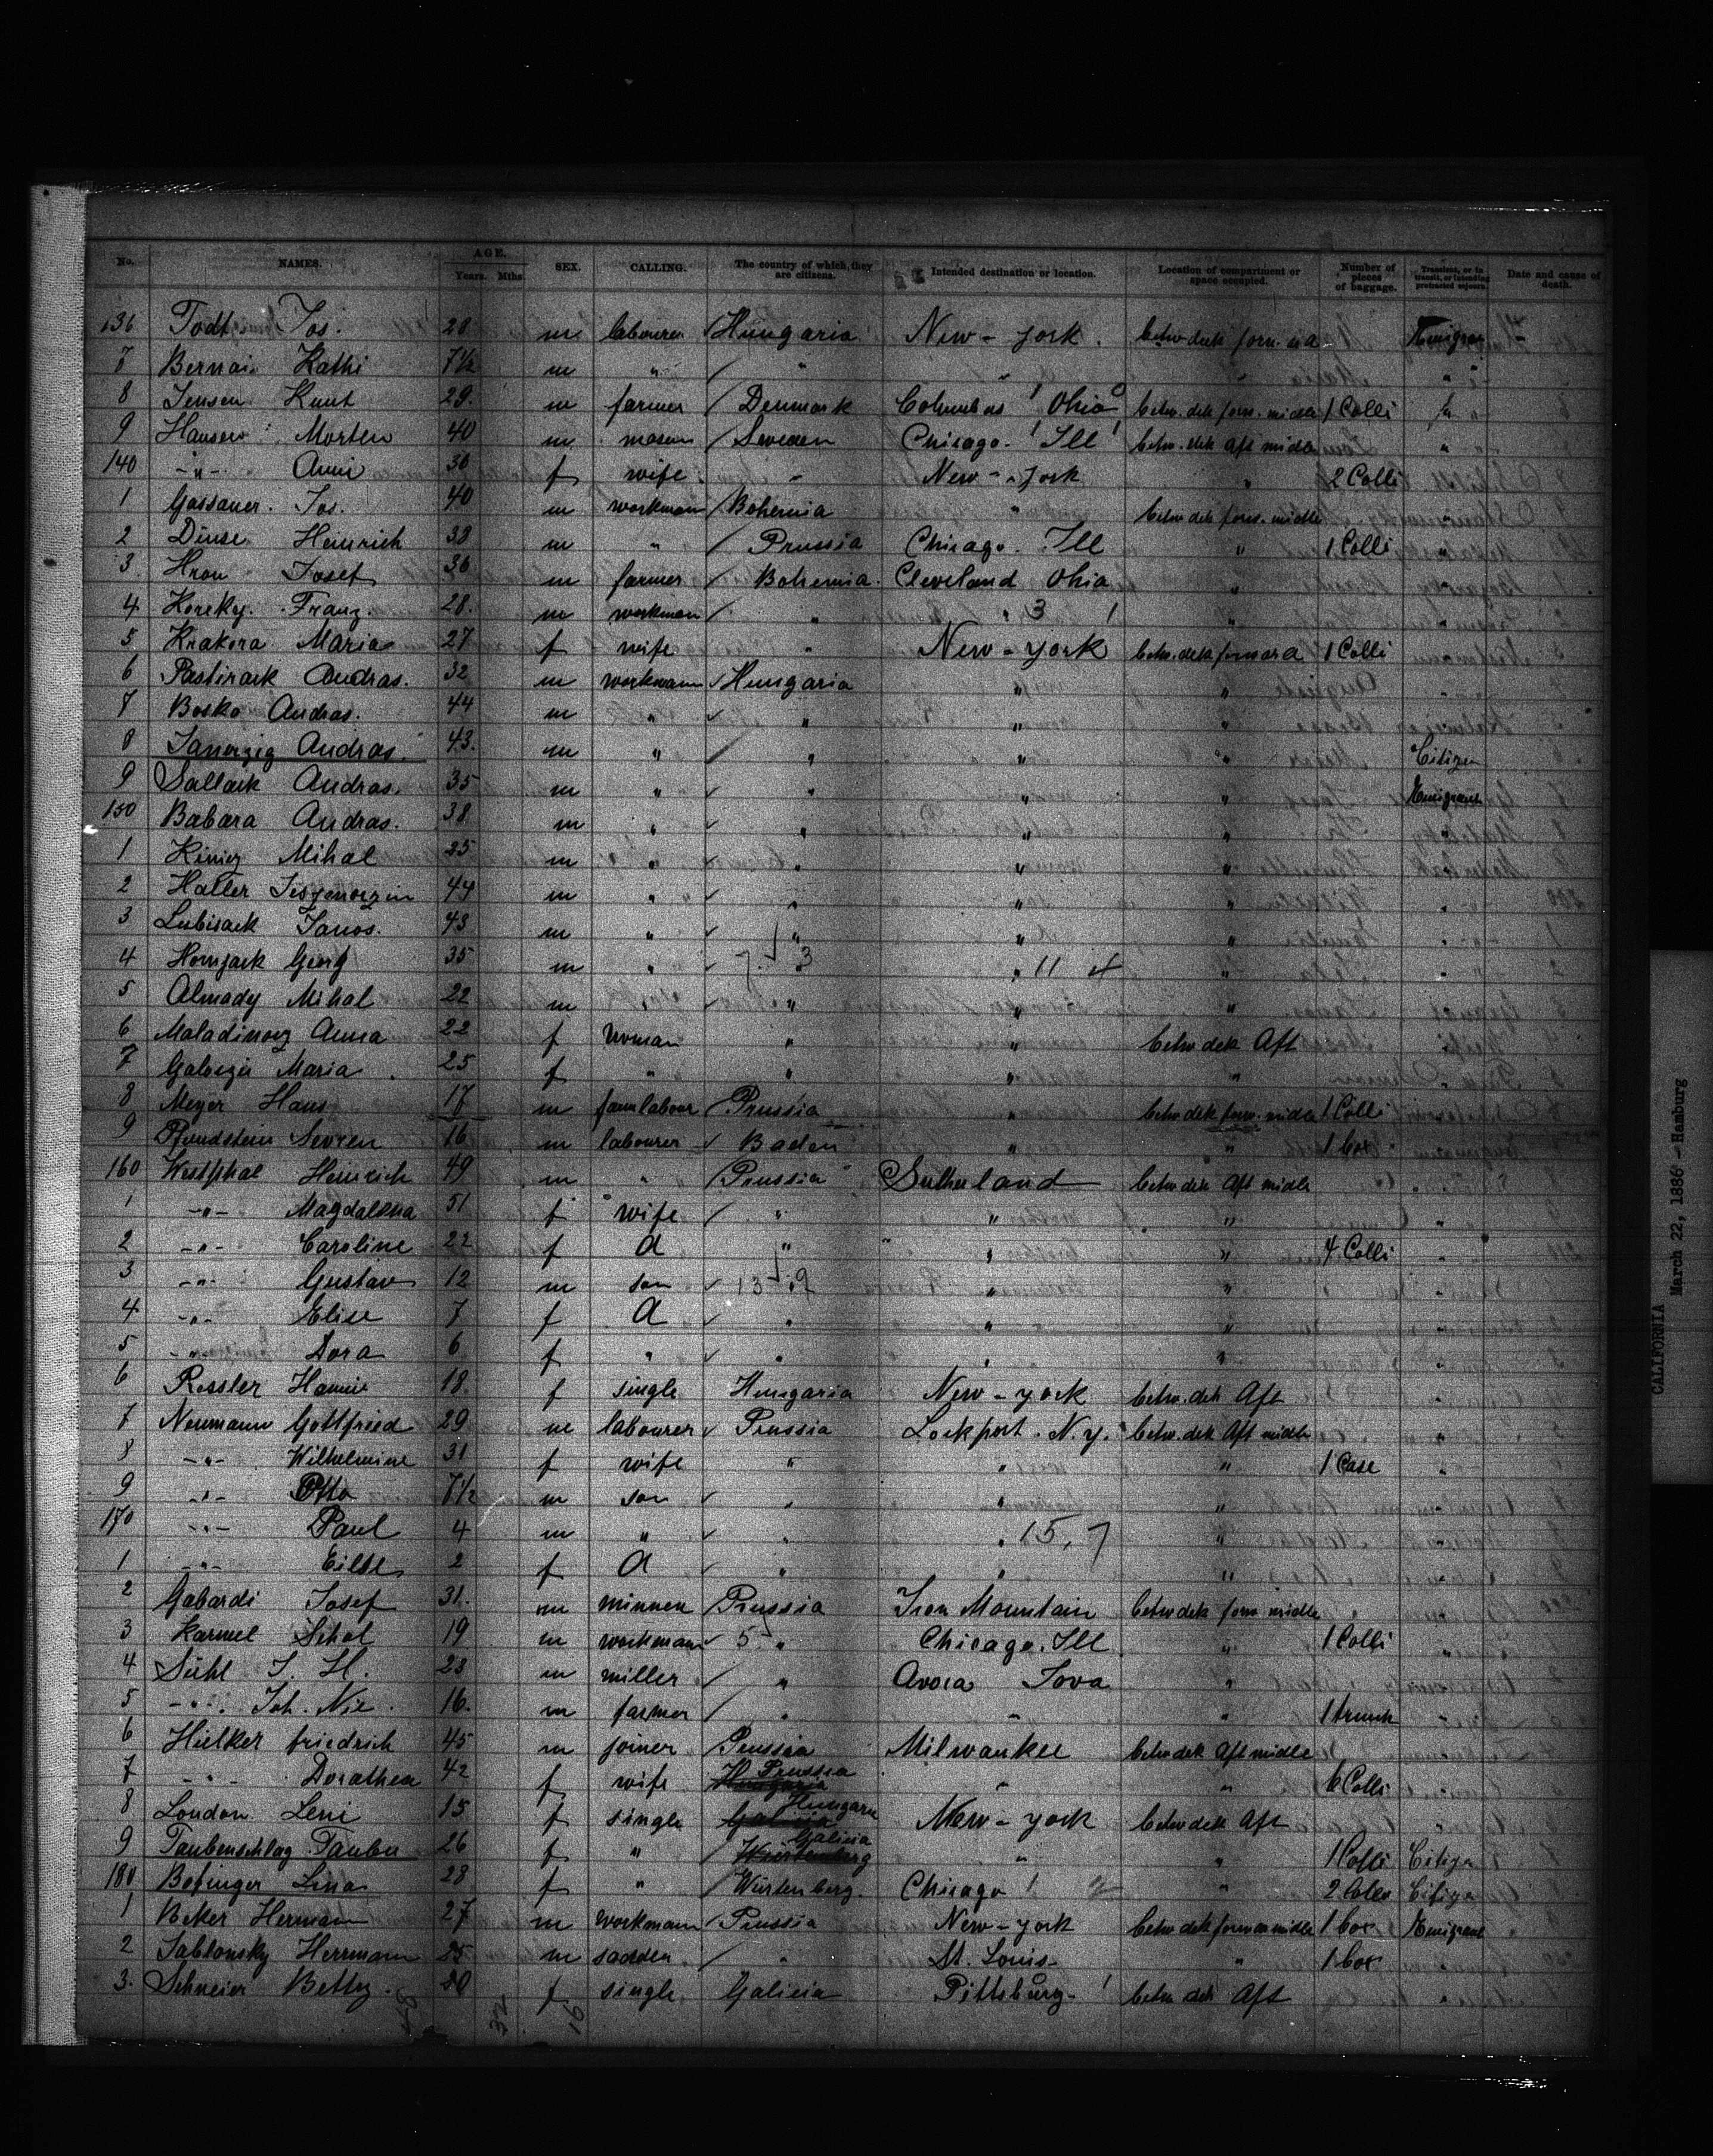 No. NAMES. AGE. Years. Mths. SEX. CALLING. The country of which, they are citizens. Intended destination or location. Location of compartment or space occupied. Number of pieces of baggage. Transient, or in transit, or intending protracted sojourn. Date and cause of death.
136 Todt Jos. 28 m labourer Hungaria New-York. betw deck Emigran
7 Bernai Kathi 7 1/2 m " " " "
8 Jensen Knut 29. m farmer Denmark Columbus Ohio betw. dek forw. midle 1 Colli "
9 Hansen Morten 40 m mason Sweden Chicago. Ill betw. dek Aft midle "
140 -"- Anni 36 f wife " New-York " 2 Colli
1 Gassauer. Jos. 40 m workman Bohemia " betw dek forw. midle "
2 Heinrich 38 m " Prussia Chicago. Ill " 1 Colli "
3. Hron Josef 36 m farmer Bohemia. Cleveland Ohio " "
4 Franz. 28. m workman " " 3 " "
5 Krakora Maria 27 f wife " New-York betw. dek forward 1 Colli "
6 Andras. 32 m workman Hungaria " " "
7 Bosko Andras. 44 m " " " " "
8 Andras. 43. m " " " " Citizen
9 Sallak Andras. 35 m " " " " Emigrant
150 Babara Andras. 38 m " " " " "
1 Mihal 25 m " " " " "
2 Haller 44 m " " " " "
3 Lubisack Janos. 43 m " " " " "
4 Homjack Georg 35 m " 7. 3 " 11 4 " "
5 Almady Mihal 22 m " " " " "
6 Anna 22 f woman " " betw dek Aft "
7 Maria 25 f " " " " "
8 Meyer Hans 17 m farm labour Prussia " betw dek forw. midle 1 Colli "
9 16 m labourer Baden " " 1 box "
160 Westphal Heinrich 49 m " Prussia Sutherland betw dek Aft midle "
1 -"- Magdalena 51 f wife " " " "
2 -"- Caroline 22 f d " " " 4 Colli "
3 -"- Gustav 12 m son 13 9 " " "
4 -"- Elise 7 f d " " " "
5 -"- Dora 6 f " " " " "
6 Ressler Hanni 18. f single Hungaria New-york betw. dek Aft "
7 Neumann Gottfried 29 m labourer Prussia Lockport. N.y. betw. dek Aft midle "
8 -"- Wilhelmine 31 f wife " " " 1 Case "
9 -"- Otto 7 1/2 m son " " " "
170 -"- Paul 4 m " " " 15, 7 " "
1 -"- 2 f d " " " "
2 Gabardi Josef 31. m minnen Prussia Iron Mountain betw dek forw midle "
3 Karmel 19 m workman 5 " Chicago. Ill " 1 Colli "
4 Sühl J. H. 23 m miller " Avoca Iova " "
5 -"- Joh. Nic. 16. m farmer " " " 1 trunk "
6 Hielker friedrich 45 m joiner Prussia Milwaukee betw dek Aft midle "
7 -"- Dorathea 42 f wife Prussia " " 6 Colli "
8 London Leni 15 f single Hungaria New-york betw dek Aft "
9 Taubenschlag Taube 26 f " Galicia " " 1 Colli Citizn
180 Bofinger Lina 28 f " Würtenberg. Chicago " 2 Collo Citizn
1 Beker Herman 27 m workman Prussia New-york 1 box Emigrant
2 Jablonsky Herrmann 25 m " St. Louis " 1 box "
3. Schneier Betty. 20 f single Galicia Pittsburg. betw dek Aft "
32 16
CALIFORNIA
March 22, 1886 - Hamburg